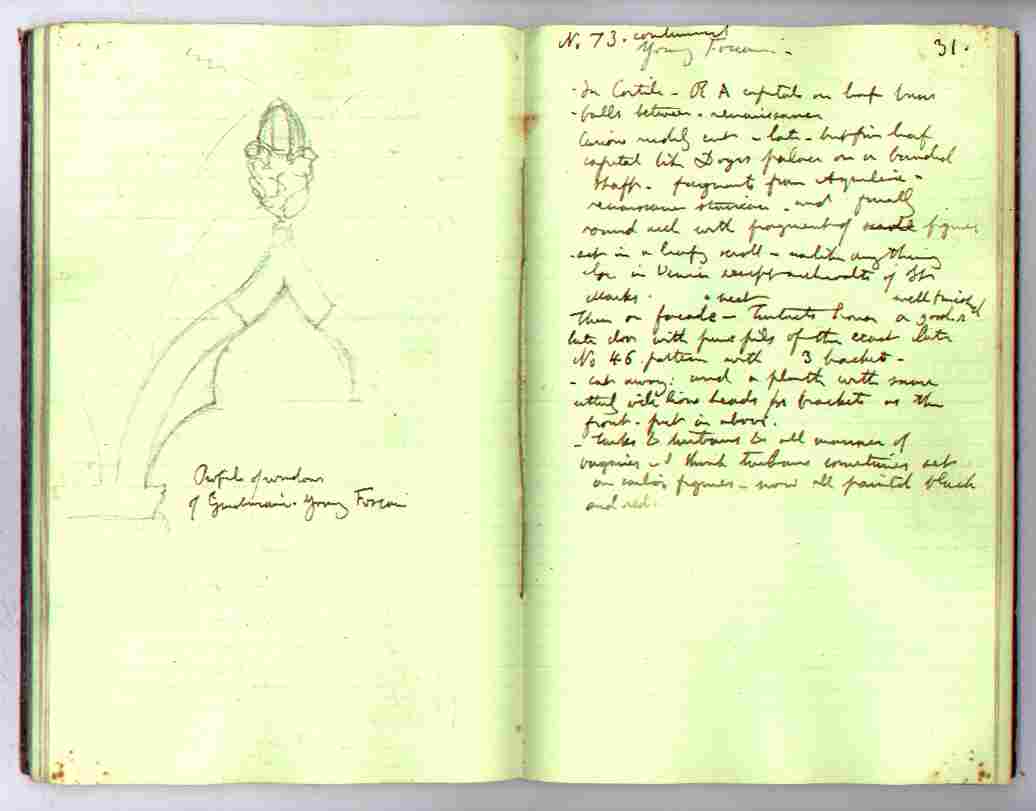 Profile of windows
of Giustiniani. Young Foscari
No 73. continued
Young Foscari -
31.
- In Cortile - R A capitals on leaf
- balls between - renaissance
Curious cut - late - but fine leaf
capital like Doges palace on a bundled
shaft. fragments from Aquileia -
renaissance staircase. and finally
round arch with fragment of figures
set in a leafy scroll - unlike anything
else in Venice except archivolts of St
Marks. neat well finished
Then on facade - Turbaned a good
late door with of the
No 46. pattern with 3 brackets -
- cut away. and a plinth with same
lions heads for brackets as the
front. put in above.
- Turks & turbans & all manner of
vagaries - I think turbans sometimes set
on figures - now all painted black
and red.